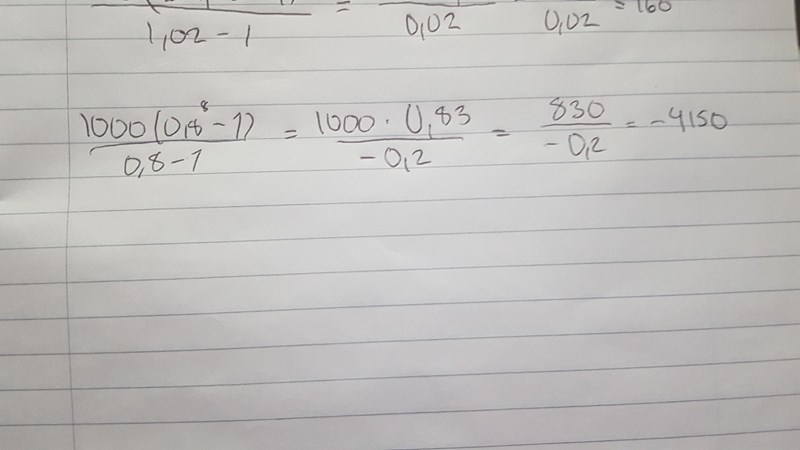 1,02 - 1 = 0,02 0,02 = 160
1000(0,8⁸ - 1) / 0,8 - 1 = 1000 · 0,83 / - 0,2 = 830 / - 0,2 = - 4150